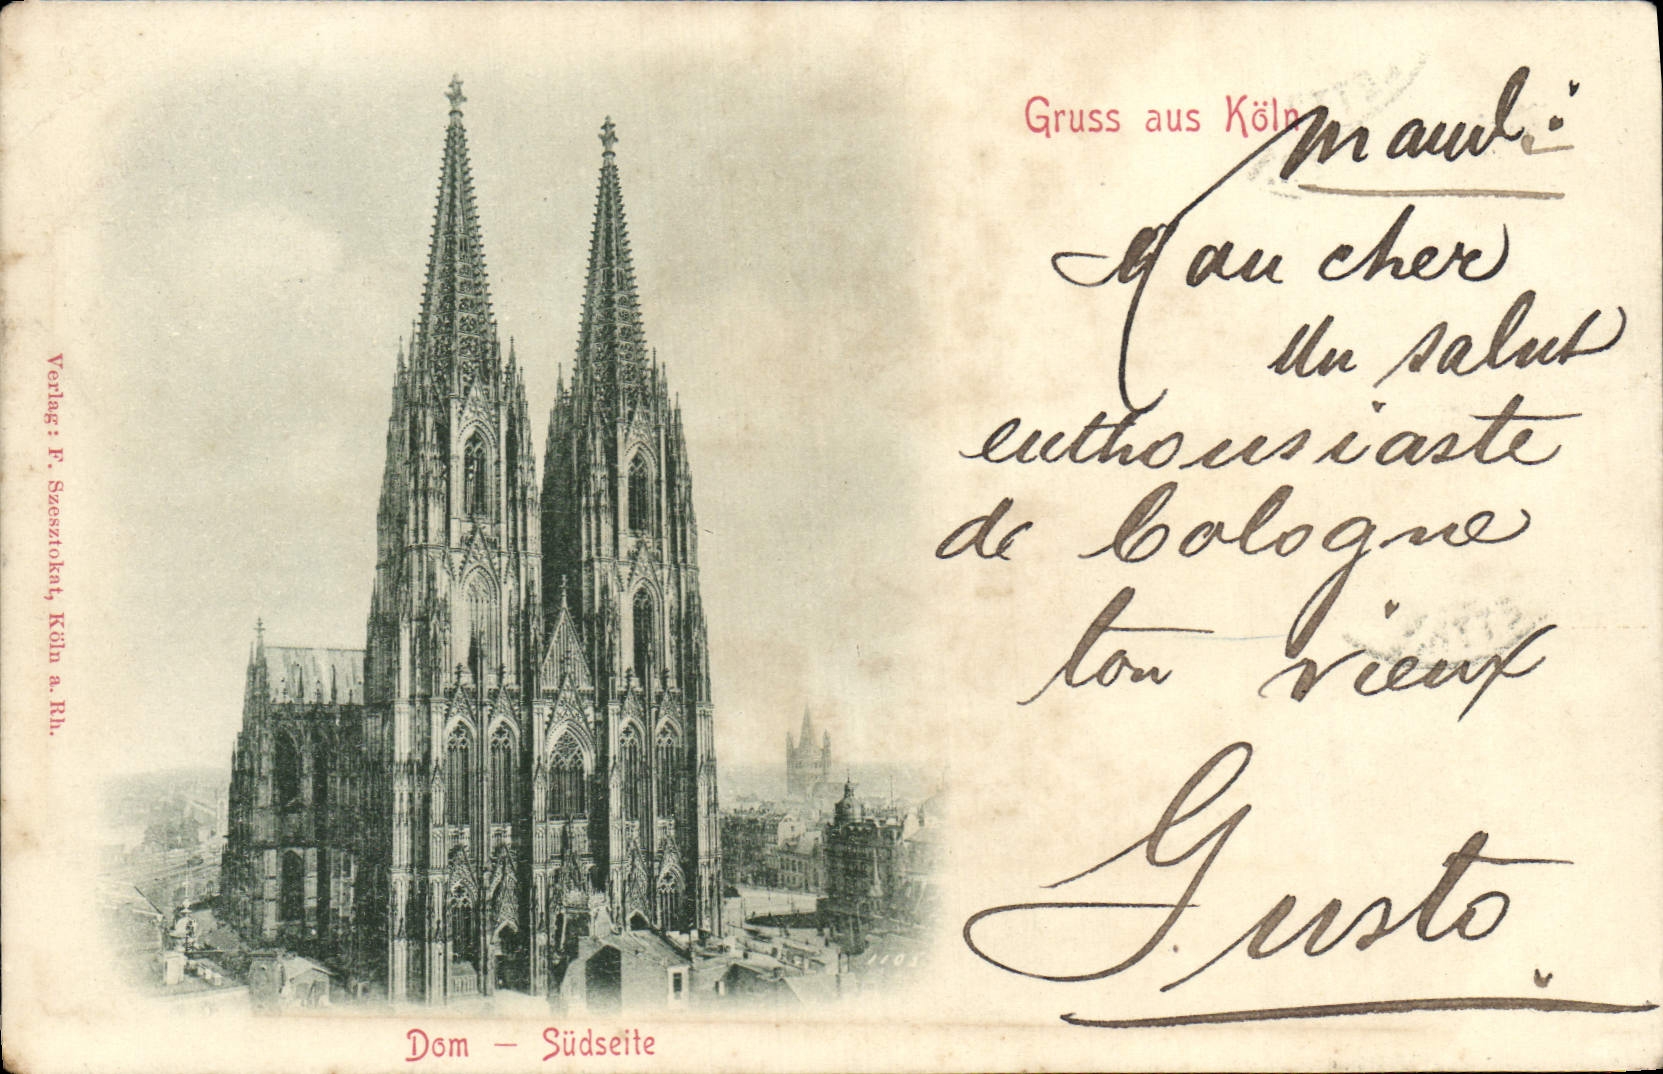 Gruss aus Köln
mardi:
Mon cher
Un salut
enthousiaste
de Cologne
ton vieux
Gusto
Verlag: F. Szesztokat, Köln a. Rh.
1105
Dom — Südseite